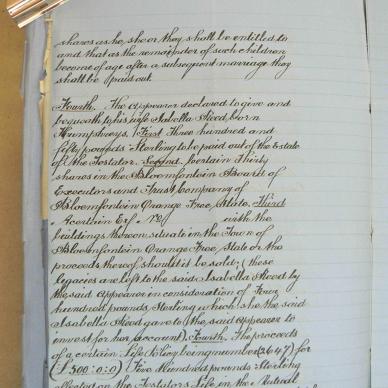 shares as he, she or they shall be entitled to
and that as the remainder of such children
become of age after a subsequent marriage they
shall be paid out
Fourth. The appearer declared to give and
bequeath to his wife Isabella Steed, born
Humphreys, First Three hundred and
fifty pounds Sterling to be paid out of the Estate
of the Testator. Second. Certain Thirty
shares in the Bloemfontein Board of
Executors and Trust Company of
Bloemfontein Orange Free State. Third
A certain Erf. No. with the
buildings thereon situate in the Town of
Bloemfontein Orange Free State or the
proceeds thereof should it be sold; (these
legacies are left to the said Isabella Steed by
the said appearer in consideration of Four
hundred pounds Sterling which she the said
Isabella Steed gave to the said appearer to
invest for her account). Fourth. The proceeds
of a certain Life Policy being number (2647) for
(£500:0:0) Five Hundred pounds Sterling
effected on the Testator's Life in the Mutual